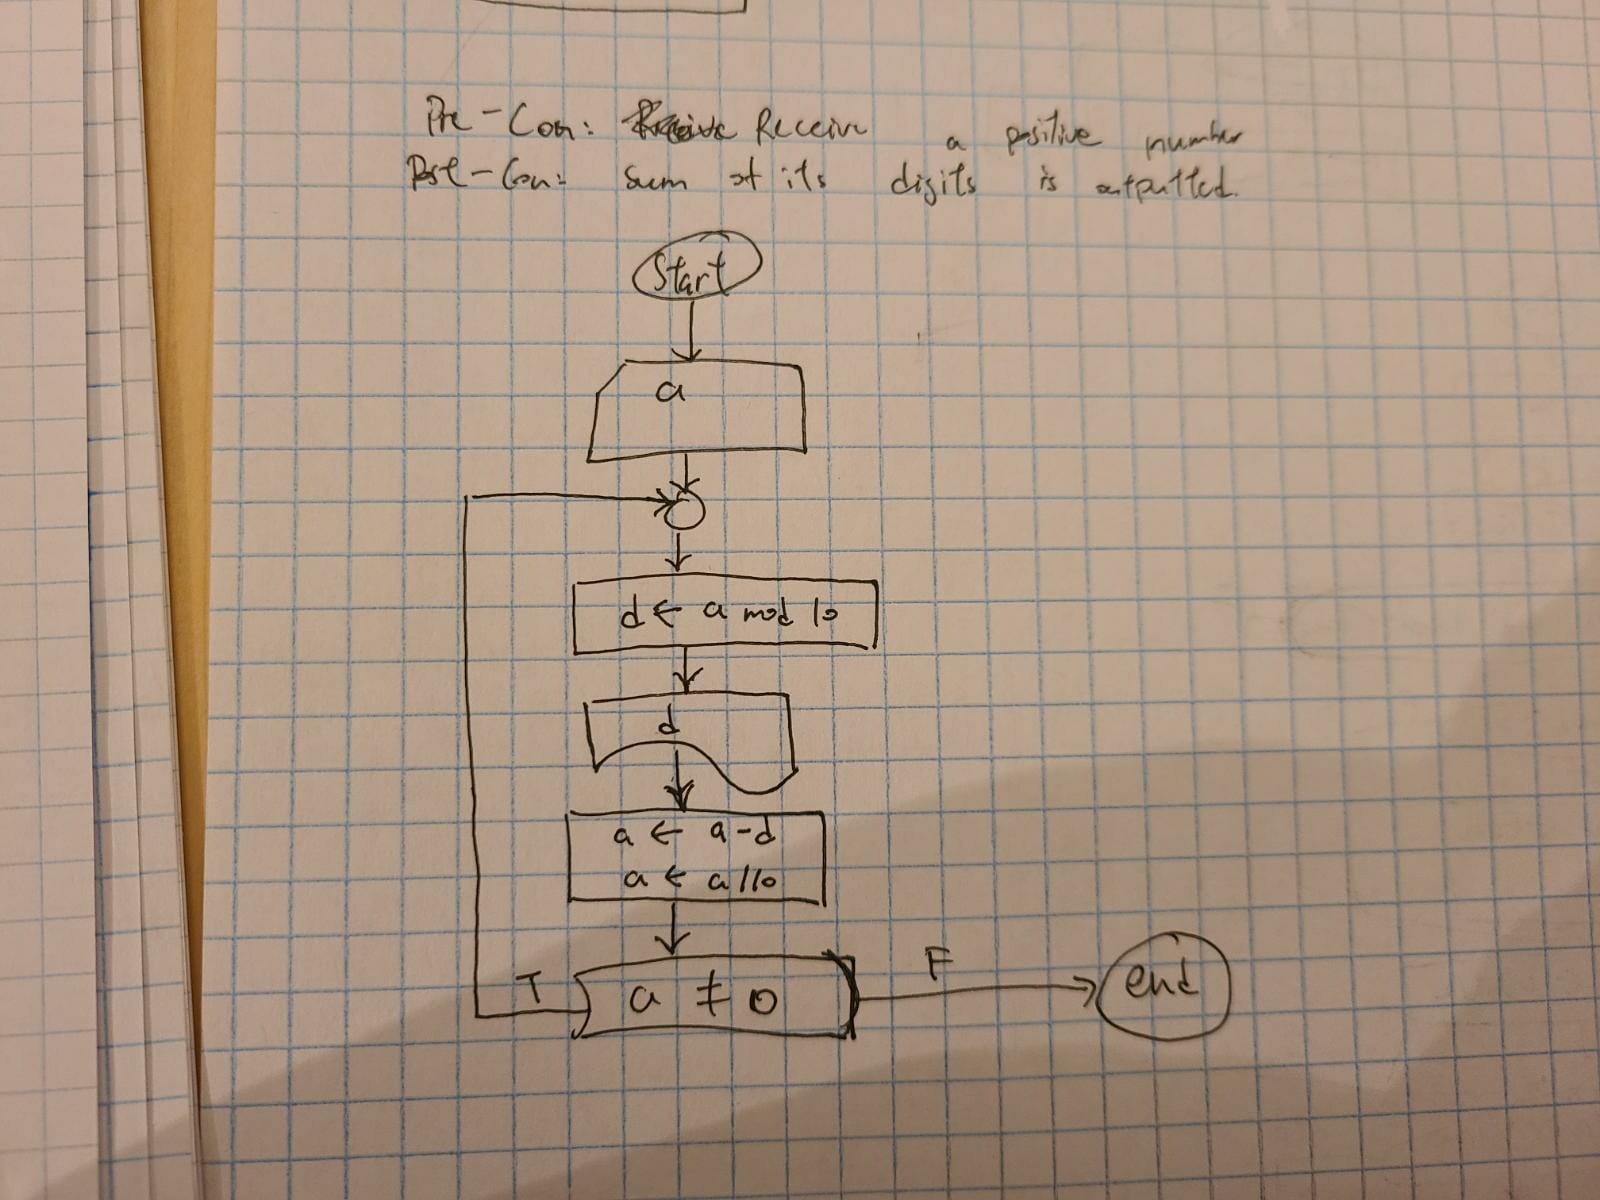 Pre-Con: Receive a positive number
Post-Con: sum of its digits is outputted.
Start
a
d ← a mod 10
d
a ← a-d
a ← a/10
a ≠ 0
T
F
end